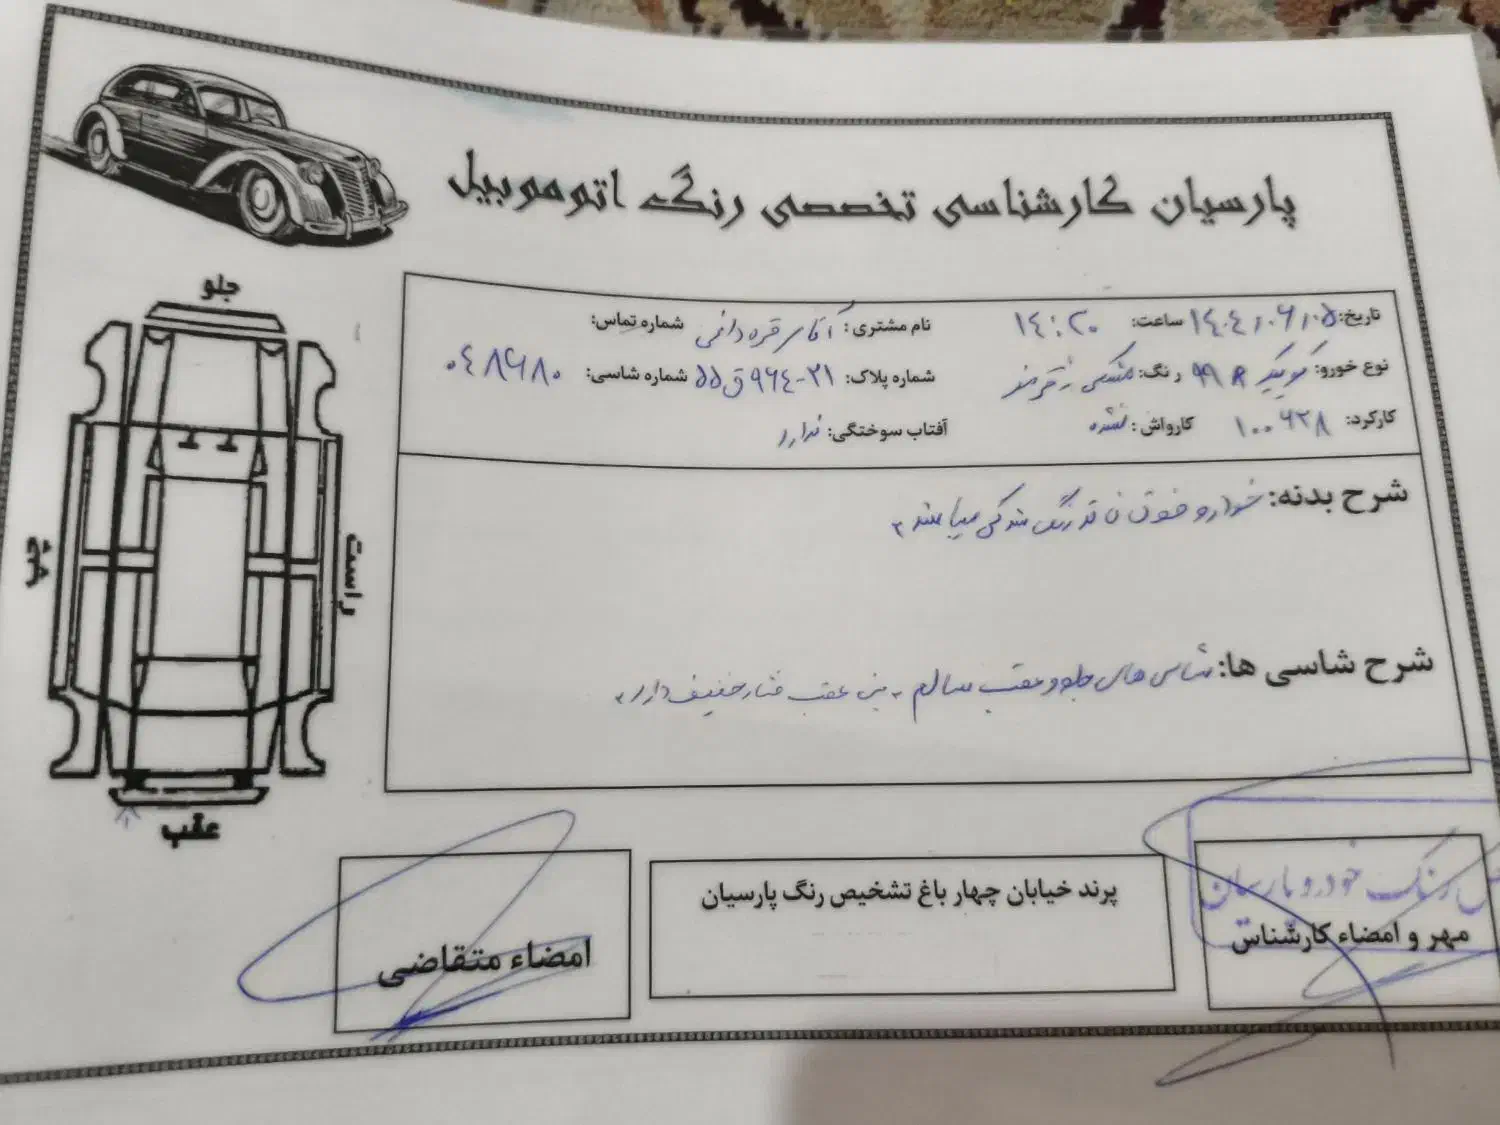 پارسیان کارشناسی تخصصی رنگ اتوموبیل
تاریخ: ۱۴۰۴/۰۶/۰۵ ساعت: ۱۴:۲۰ نام مشتری: آقای شماره تماس:
نوع خورو: کوییک R ۹۹ رنگ: مشکی قرمز شماره پلاک: ۲۱-۹۶۴ق۵۵ شماره شاسی: ۰۴۸۶۸۰
کارکرد: ۱۰۰۶۲۸ کارواش: نشده آفتاب سوختگی: ندارد
شرح بدنه: خودارو فوق فاقد رنگ شدگی میباشد
شرح شاسی ها: شاسی های جلو و عقب سالم - سینی عقب فشار خفیف دارد
جلو
چپ
راست
عقب
امضاء متقاضی
پرند خیابان چهار باغ تشخیص رنگ پارسیان
رنگ خودرو پارسیان
مهر و امضاء کارشناس